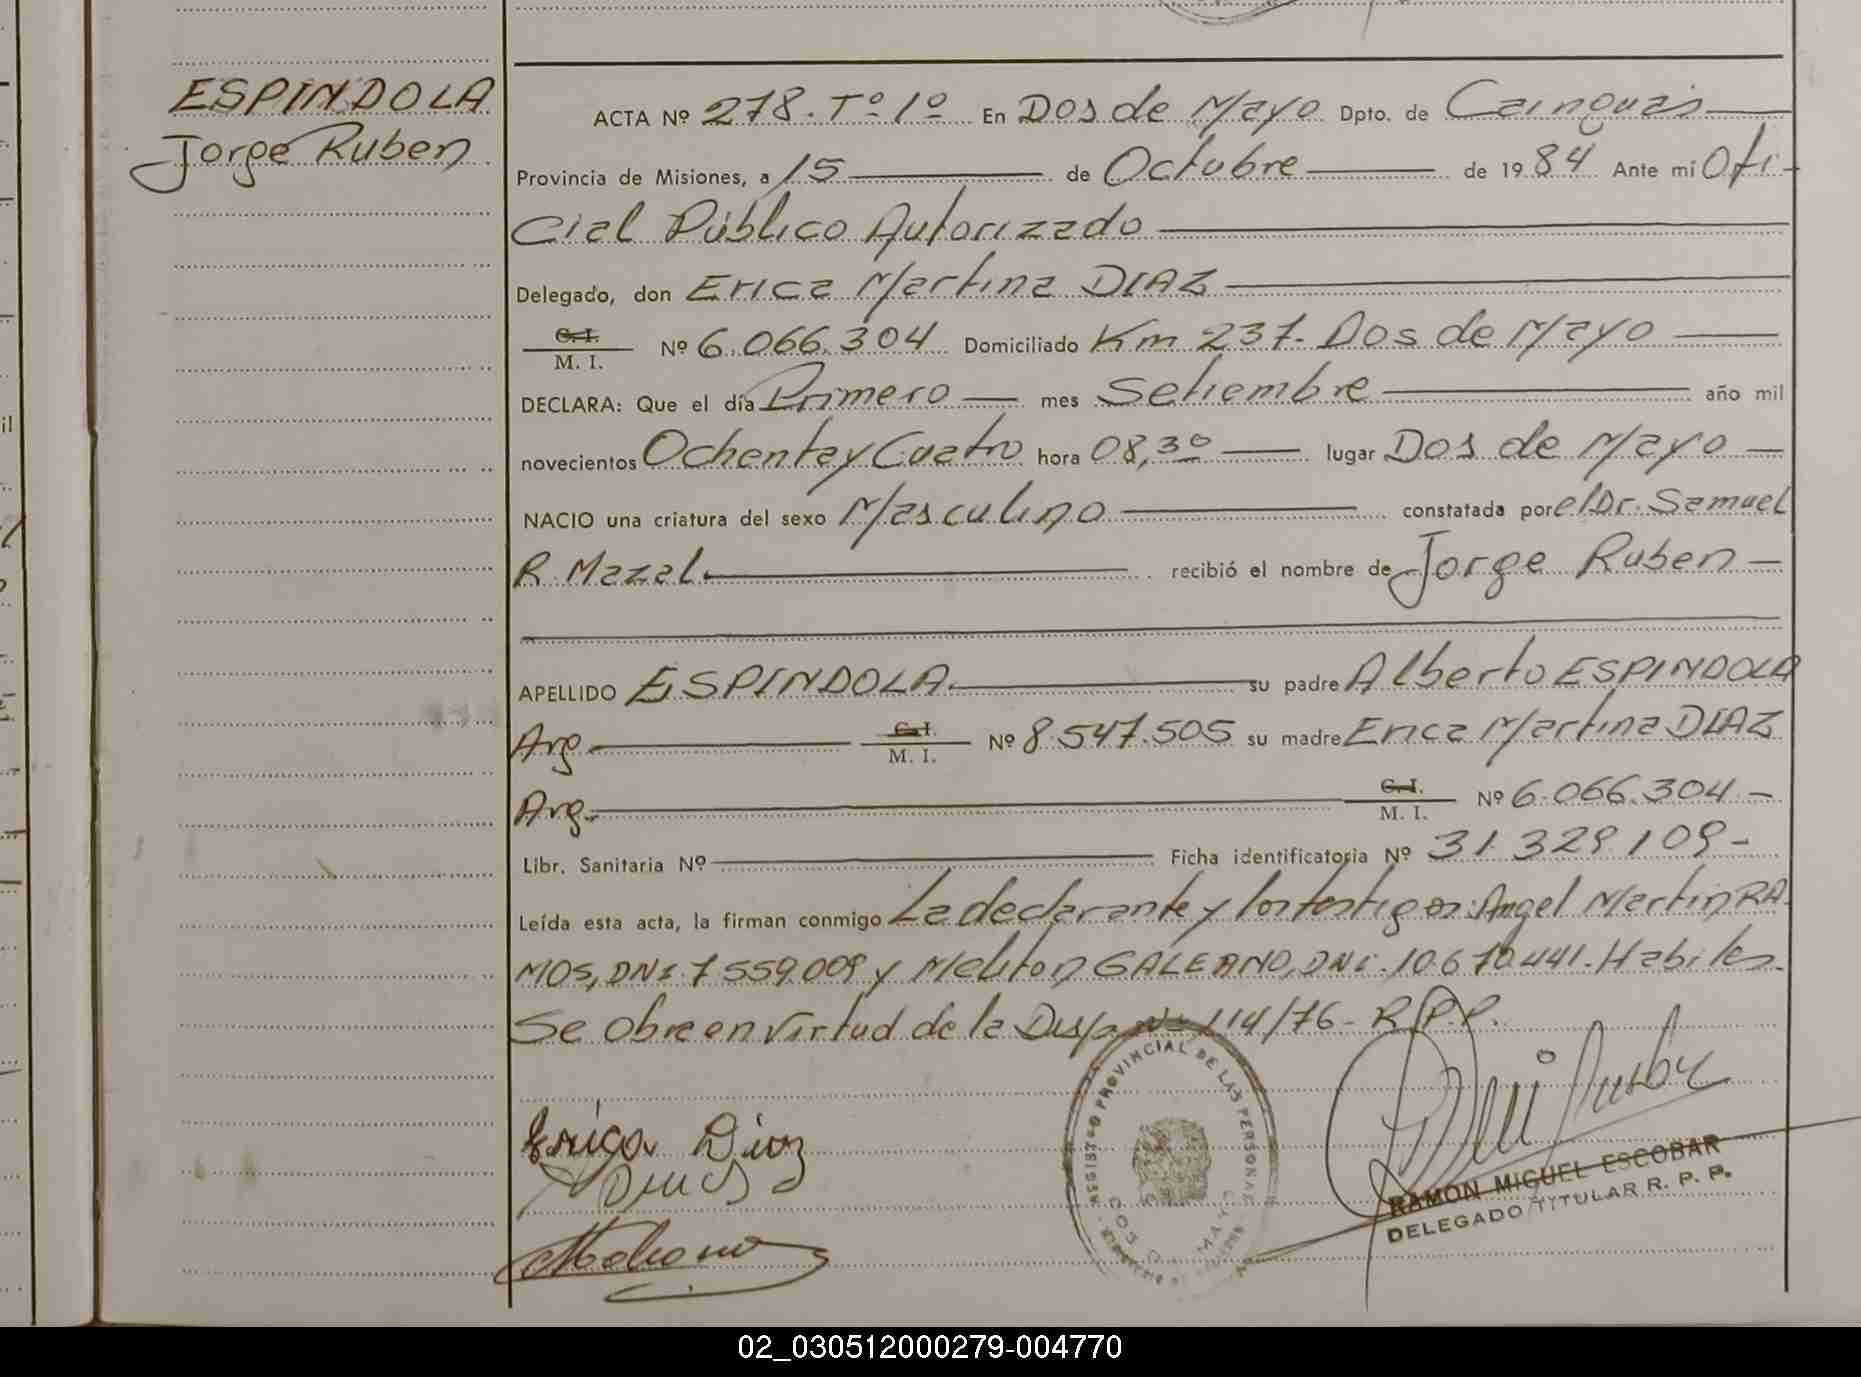 ESPINDOLA
Jorge Ruben
ACTA Nº 278. Tº 1º En Dos de Mayo Dpto. de Cainguás
Provincia de Misiones, a 15 de Octubre de 1984 Ante mí Ofi-
cial Público Autorizado
Delegado, don Erica Martina DIAZ
C. I.
M. I. Nº 6.066.304 Domiciliado Km 237. Dos de Mayo
DECLARA: Que el día Primero mes Setiembre año mil
novecientos Ochenta y Cuatro hora 08,30 lugar Dos de Mayo
NACIO una criatura del sexo Masculino constatada por el Dr. Samuel
R. Mazal recibió el nombre de Jorge Ruben
APELLIDO ESPINDOLA su padre Alberto ESPINDOLA
Arg. C. I. M. I. Nº 8.547.505 su madre Erica Martina DIAZ
Arg. C. I. M. I. Nº 6.066.304
Libr. Sanitaria Nº Ficha identificatoria Nº 31.329.109-
Leída esta acta, la firman conmigo La declarante y los testigos: Angel Martin RA
MOS, DNI. 7.559.009 y Meliton GALEANO, DNI. 10.670.441. Habiles.
Se obra en virtud de la Disp. Nº 114/76- R.P.P.
Erica Diaz
REGISTRO PROVINCIAL DE LAS PERSONAS
DOS DE MAYO
RAMON MIGUEL ESCOBAR
DELEGADO TITULAR R. P. P.
02_030512000279-004770